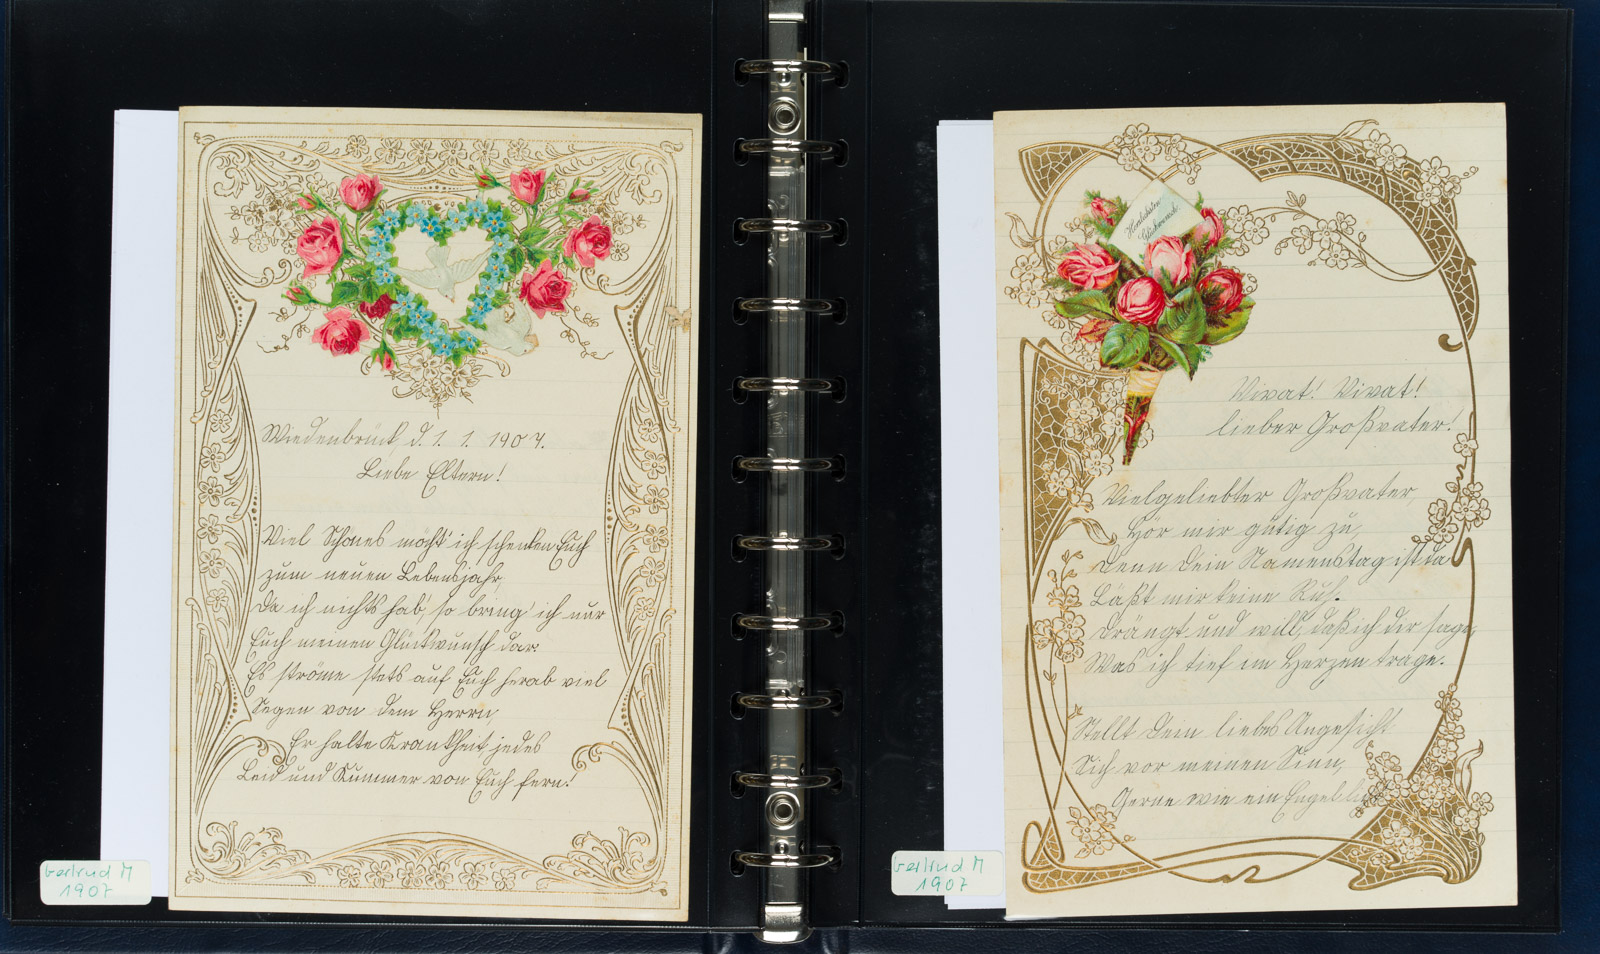 Wiedenbrück, d. 1. 1. 1907.
Liebe Eltern!
Viel Schönes möcht' ich schenken Euch
zum neuen Lebensjahr,
Da ich nichts hab', so bring' ich nur
Euch meinen Glückwunsch dar.
Es ströme stets auf Euch herab viel
Segen von dem Herrn,
Er halte Krankheit, jedes
Leid und Kummer von Euch fern!
Gertrud M
1907
Herzlichsten
Glückwunsch.
Vivat! Vivat!
lieber Großvater!
Vielgeliebter Großvater,
Hör mir gütig zu,
Denn Dein Namenstag ist da
Läßt mir keine Ruh.
Drängt und will, daß ich dir sage,
Was ich tief im Herzen trage.
Stellt Dein liebes Angesicht
Sich vor meinen Sinn,
Gerne wie ein Engel
Gertrud M
1907